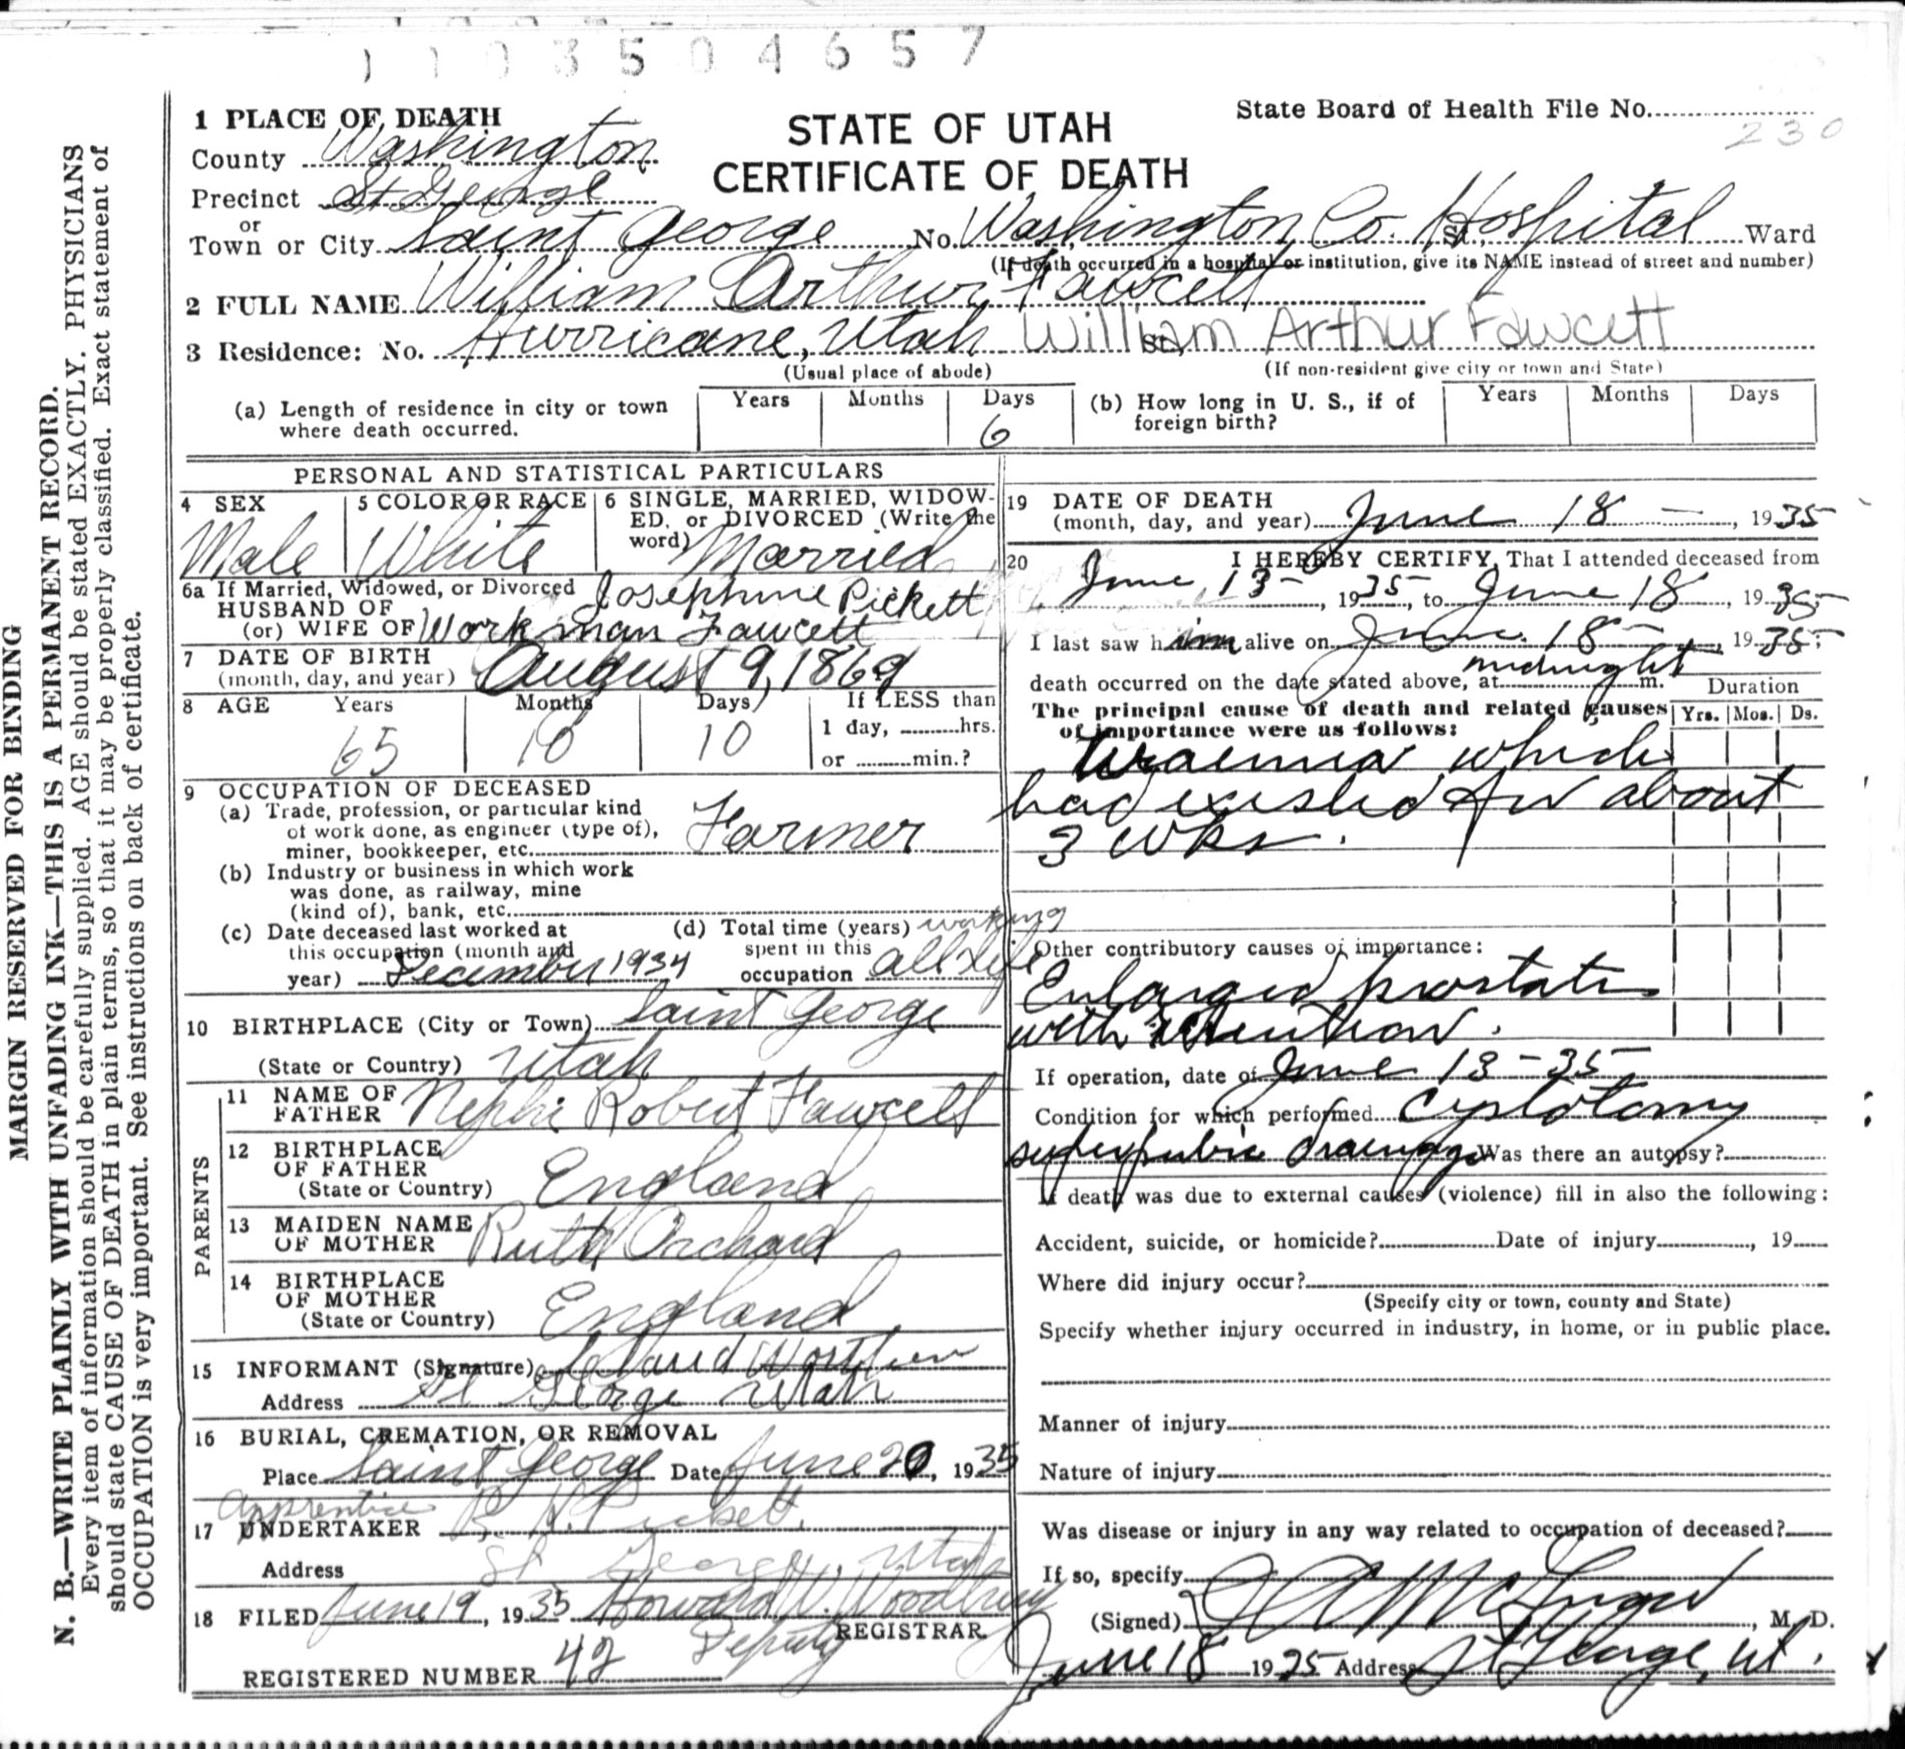 1 1 0 3 5 0 4 6 5 7
MARGIN RESERVED FOR BINDING
N. B.—WRITE PLAINLY WITH UNFADING INK—THIS IS A PERMANENT RECORD.
Every item of information should be carefully supplied. AGE should be stated EXACTLY. PHYSICIANS
should state CAUSE OF DEATH in plain terms, so that it may be properly classified. Exact statement of
OCCUPATION is very important. See instructions on back of certificate.
STATE OF UTAH
CERTIFICATE OF DEATH
State Board of Health File No.
230
1 PLACE OF DEATH
County Washington
Precinct St George
or
Town or City Saint George No. Washington Co. Hospital St., Ward
(If death occurred in a hospital or institution, give its NAME instead of street and number)
2 FULL NAME William Arthur Fawcett
3 Residence: No. Hurricane, Utah William Arthur Fawcett St.,
(Usual place of abode) (If non-resident give city or town and State)
(a) Length of residence in city or town where death occurred. Years Months Days 6
(b) How long in U. S., if of foreign birth? Years Months Days
PERSONAL AND STATISTICAL PARTICULARS
4 SEX Male
5 COLOR OR RACE White
6 SINGLE, MARRIED, WIDOWED, or DIVORCED (Write the word) Married
6a If Married, Widowed, or Divorced Josephine Pickett
HUSBAND OF
(or) WIFE OF Workman Fawcett
7 DATE OF BIRTH
(month, day, and year) August 9, 1869
8 AGE Years Months Days If LESS than
65 10 10 1 day, hrs.
or min.?
9 OCCUPATION OF DECEASED
(a) Trade, profession, or particular kind
of work done, as engineer (type of),
miner, bookkeeper, etc. Farmer
(b) Industry or business in which work
was done, as railway, mine
(kind of), bank, etc.
(c) Date deceased last worked at
this occupation (month and
year) December 1934
(d) Total time (years) working
spent in this
occupation all life
10 BIRTHPLACE (City or Town) Saint George
(State or Country) Utah
PARENTS
11 NAME OF
FATHER Nephi Robert Fawcett
12 BIRTHPLACE
OF FATHER
(State or Country) England
13 MAIDEN NAME
OF MOTHER Ruth Orchard
14 BIRTHPLACE
OF MOTHER
(State or Country) England
15 INFORMANT (Signature) Worthen
Address St George Utah
16 BURIAL, CREMATION, OR REMOVAL
Place Saint George Date June 20, 1935
Apprentice
17 UNDERTAKER Pickett
Address St George, Utah
18 FILED June 19, 1935 Howard W. Woodbury
Deputy REGISTRAR
REGISTERED NUMBER 42
19 DATE OF DEATH
(month, day, and year) June 18, 1935
20 I HEREBY CERTIFY, That I attended deceased from
June 13, 1935, to June 18, 1935
I last saw him alive on June 18, 1935;
death occurred on the date stated above, at midnight m.
The principal cause of death and related causes
of importance were as follows:
Duration
Yrs. Mos. Ds.
Uraemia which
had existed for about
3 wks.
Other contributory causes of importance:
Enlarged prostate
with retention.
If operation, date of June 13-35
Condition for which performed Cystotomy
suprapubic drainage Was there an autopsy?
If death was due to external causes (violence) fill in also the following:
Accident, suicide, or homicide? Date of injury, 19
Where did injury occur?
(Specify city or town, county and State)
Specify whether injury occurred in industry, in home, or in public place.
Manner of injury
Nature of injury
Was disease or injury in any way related to occupation of deceased?
If so, specify
(Signed) M. D.
June 18 1935 Address St George, Ut.